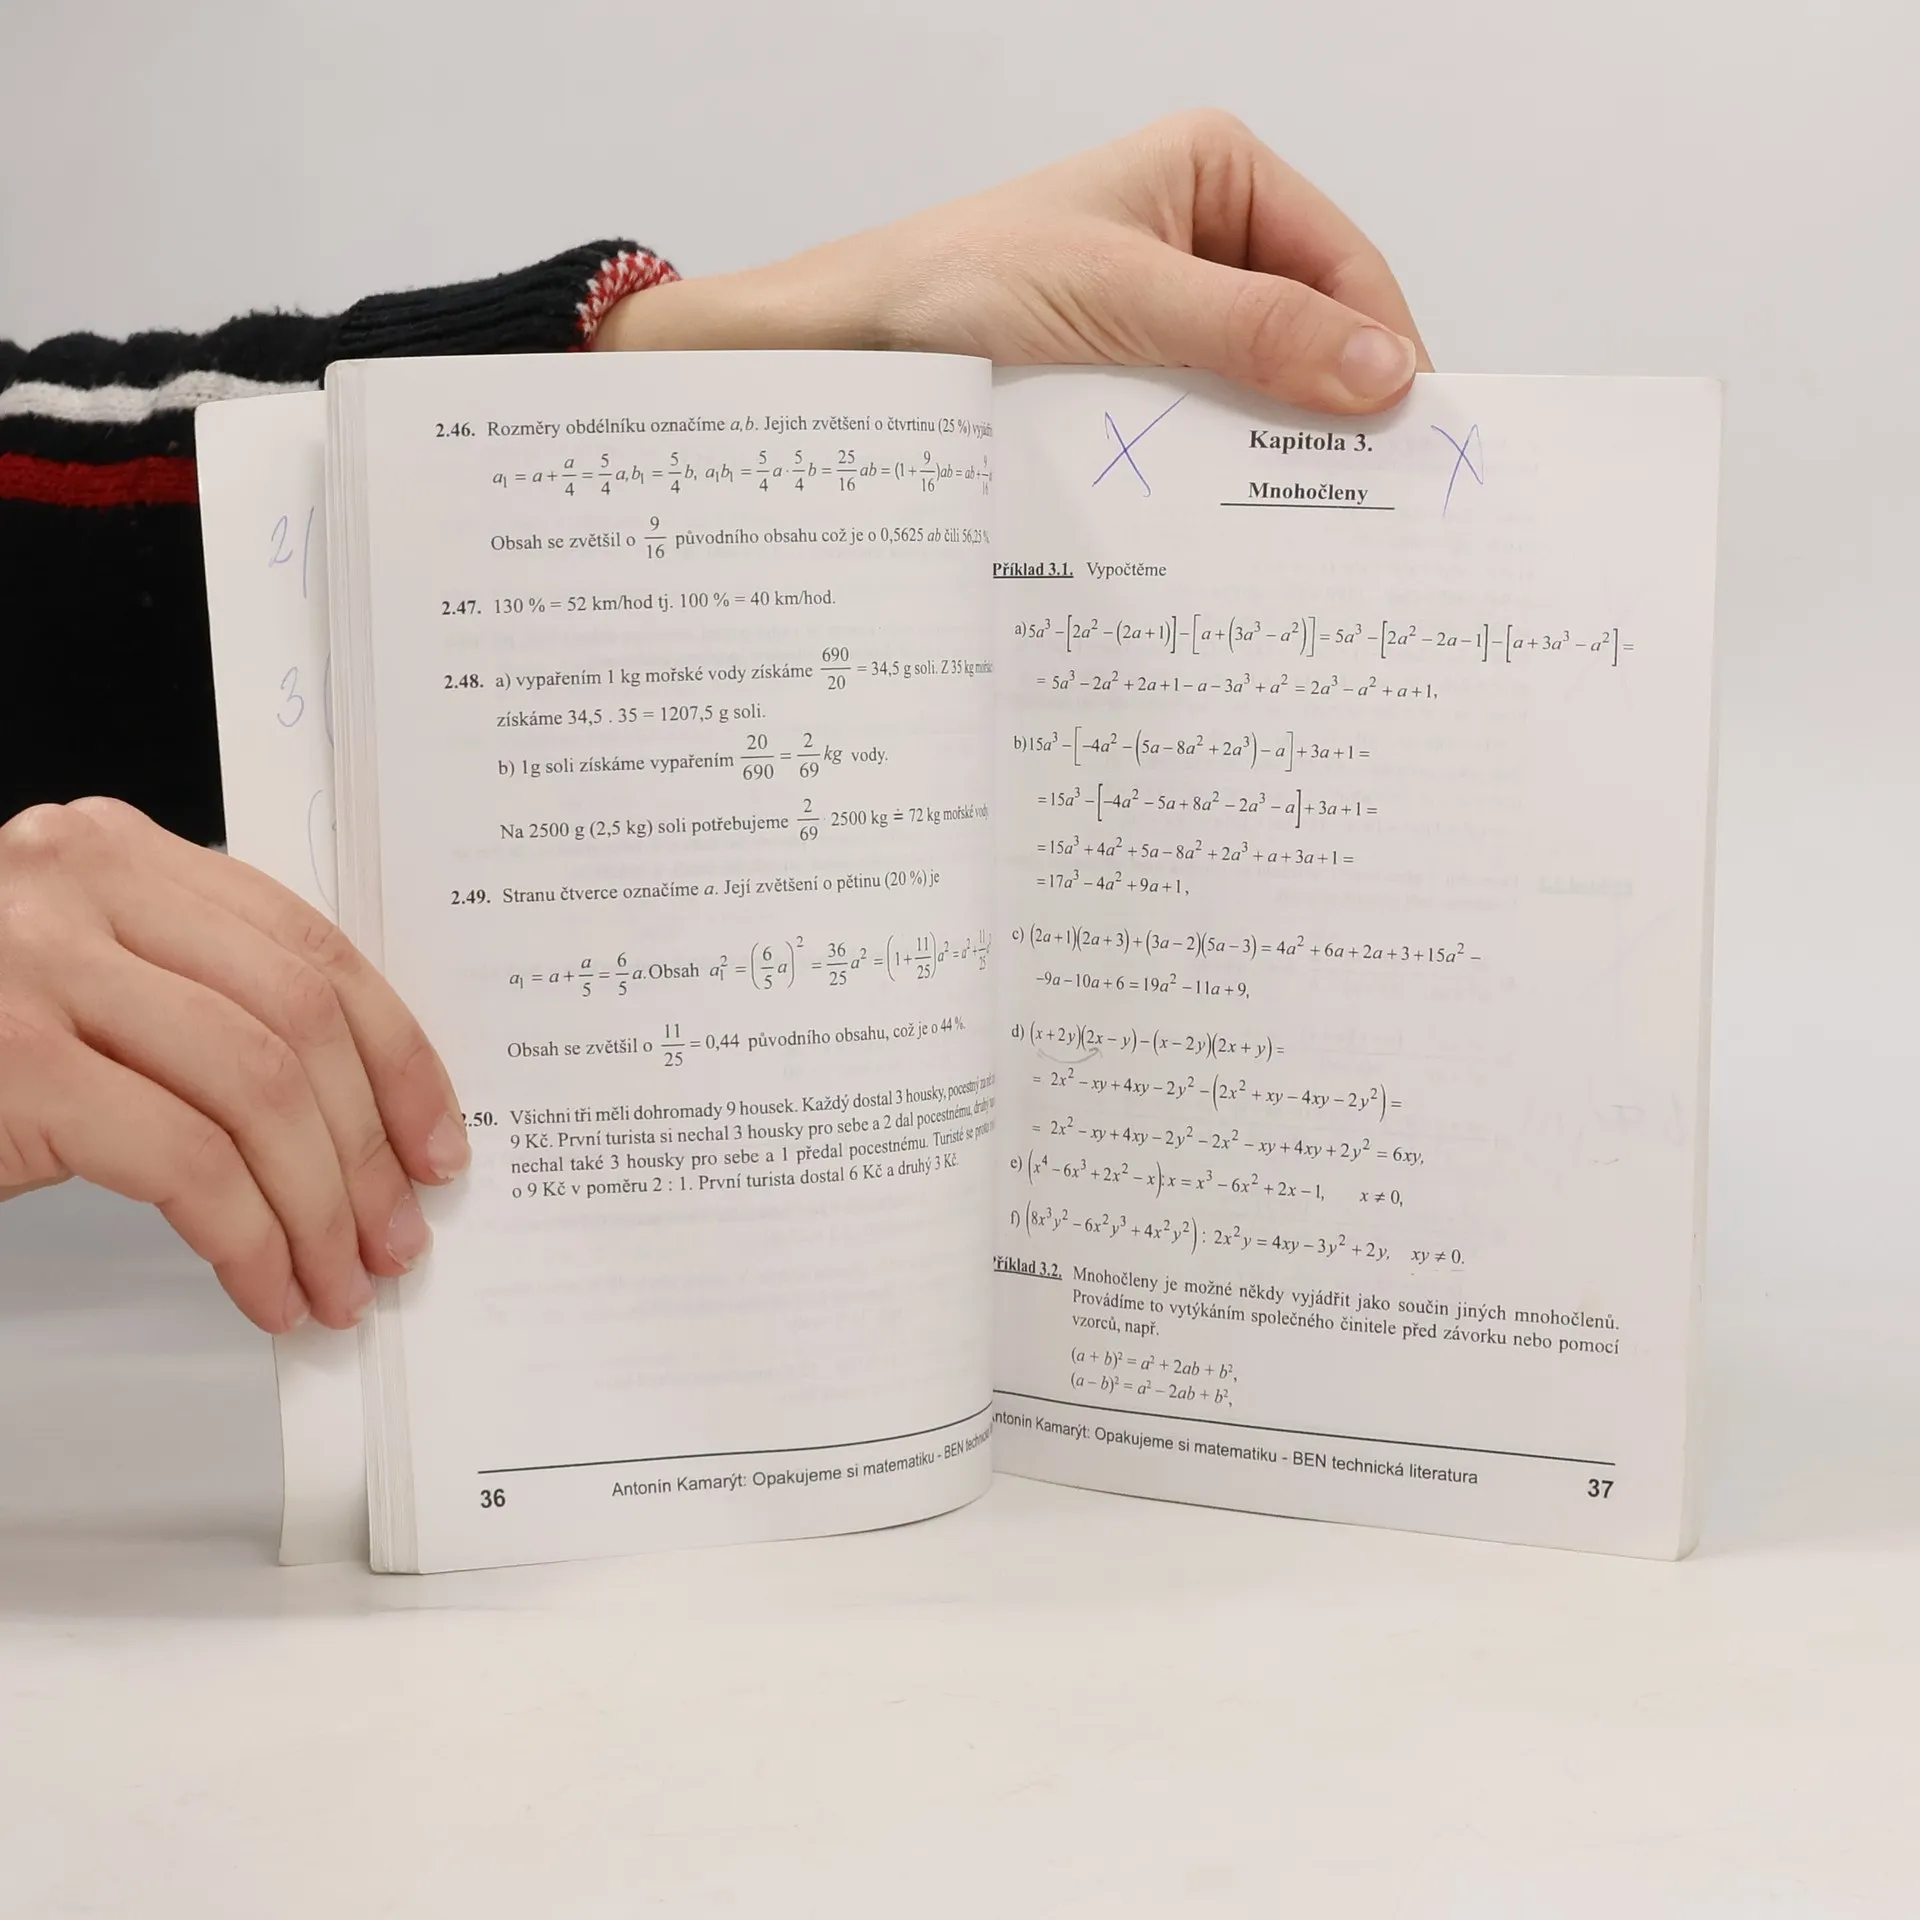 2.46. Rozměry obdélníku označíme a, b. Jejich zvětšení o čtvrtinu (25 %)
a₁ = a + a/4 = 5/4 a, b₁ = 5/4 b, a₁b₁ = 5/4 a · 5/4 b = 25/16 ab = (1 + 9/16)ab = ab + 9/16
Obsah se zvětšil o 9/16 původního obsahu což je o 0,5625 ab čili 56,25 %
2.47. 130 % = 52 km/hod tj. 100 % = 40 km/hod.
2.48. a) vypařením 1 kg mořské vody získáme 690/20 = 34,5 g soli. Z 35 kg
získáme 34,5 . 35 = 1207,5 g soli.
b) 1g soli získáme vypařením 20/690 = 2/69 kg vody.
Na 2500 g (2,5 kg) soli potřebujeme 2/69 · 2500 kg ≐ 72 kg mořské vody
2.49. Stranu čtverce označíme a. Její zvětšení o pětinu (20 %) je
a₁ = a + a/5 = 6/5 a. Obsah a₁² = (6/5 a)² = 36/25 a² = (1 + 11/25)a² = a² + 11/25
Obsah se zvětšil o 11/25 = 0,44 původního obsahu, což je o 44 %.
2.50. Všichni tři měli dohromady 9 housek. Každý dostal 3 housky, pocestný za
9 Kč. První turista si nechal 3 housky pro sebe a 2 dal pocestnému, druhý
nechal také 3 housky pro sebe a 1 předal pocestnému. Turisté se
o 9 Kč v poměru 2 : 1. První turista dostal 6 Kč a druhý 3 Kč.
Antonín Kamarýt: Opakujeme si matematiku - BEN
36
2(
3(
Kapitola 3.
Mnohočleny
Příklad 3.1. Vypočtěme
a) 5a³ − [2a² − (2a + 1)] − [a + (3a³ − a²)] = 5a³ − [2a² − 2a − 1] − [a + 3a³ − a²] =
= 5a³ − 2a² + 2a + 1 − a − 3a³ + a² = 2a³ − a² + a + 1,
b) 15a³ − [−4a² − (5a − 8a² + 2a³) − a] + 3a + 1 =
= 15a³ − [−4a² − 5a + 8a² − 2a³ − a] + 3a + 1 =
= 15a³ + 4a² + 5a − 8a² + 2a³ + a + 3a + 1 =
= 17a³ − 4a² + 9a + 1,
c) (2a + 1)(2a + 3) + (3a − 2)(5a − 3) = 4a² + 6a + 2a + 3 + 15a² −
−9a − 10a + 6 = 19a² − 11a + 9,
d) (x + 2y)(2x − y) − (x − 2y)(2x + y) =
= 2x² − xy + 4xy − 2y² − (2x² + xy − 4xy − 2y²) =
= 2x² − xy + 4xy − 2y² − 2x² − xy + 4xy + 2y² = 6xy,
e) (x⁴ − 6x³ + 2x² − x) : x = x³ − 6x² + 2x − 1, x ≠ 0,
f) (8x³y² − 6x²y³ + 4x²y²) : 2x²y = 4xy − 3y² + 2y, xy ≠ 0.
Příklad 3.2. Mnohočleny je možné někdy vyjádřit jako součin jiných mnohočlenů.
Provádíme to vytýkáním společného činitele před závorku nebo pomocí
vzorců, např.
(a + b)² = a² + 2ab + b²,
(a − b)² = a² − 2ab + b²,
Antonín Kamarýt: Opakujeme si matematiku - BEN technická literatura
37